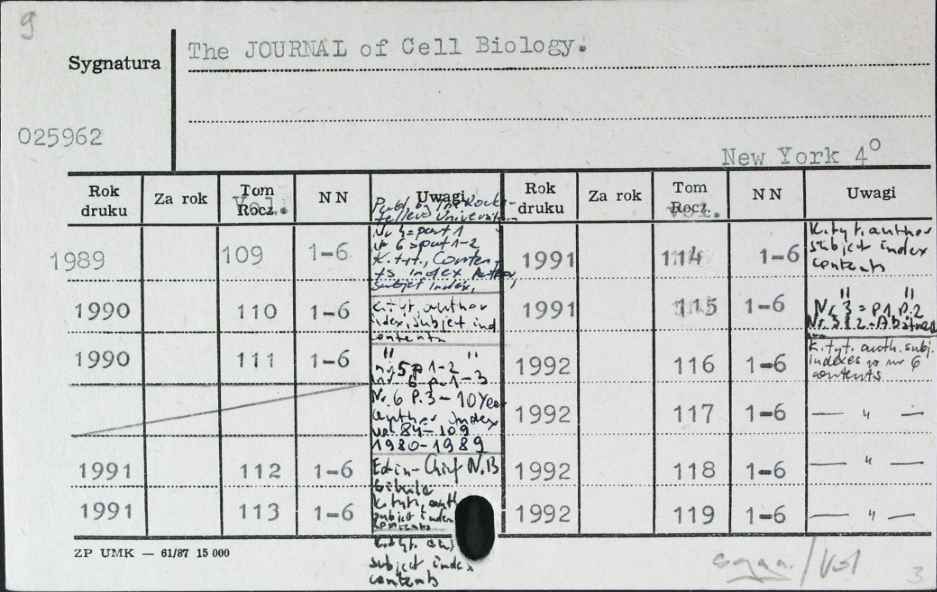 9
Sygnatura
The JOURNAL of Cell Biology.
025962
New York 4°
Rok druku Za rok Tom Rocz. Vol. NN Uwagi Rok druku Za rok Tom Rocz. Vol. NN Uwagi
1989 109 1-6 Nr 5=part 1
Nr 6=part 1-2
K.tyt., Contents index Author,
subject index,
1991 114 1-6 K.tyt. author
subject index
contents
1990 110 1-6 K.tyt. author
index, subject ind
contents
1991 115 1-6 " "
Nr. 3 = p.1, p.2
1990 111 1-6 " "
nr 5 p 1-2
nr 6 p. 1-3
Nr. 6 P.3 - 10 Year
author index
vol 84-109
1980-1989
1992 116 1-6 K.tyt. auth. subj.
indexes w nr 6
contents
1992 117 1-6 — " —
1991 112 1-6 N.B
K.tyt. auth
subject index
contents
1992 118 1-6 — " —
1991 113 1-6 K.tyt.
subject index
contents
1992 119 1-6 — " —
ZP UMK — 61/87 15 000
/Vol
3